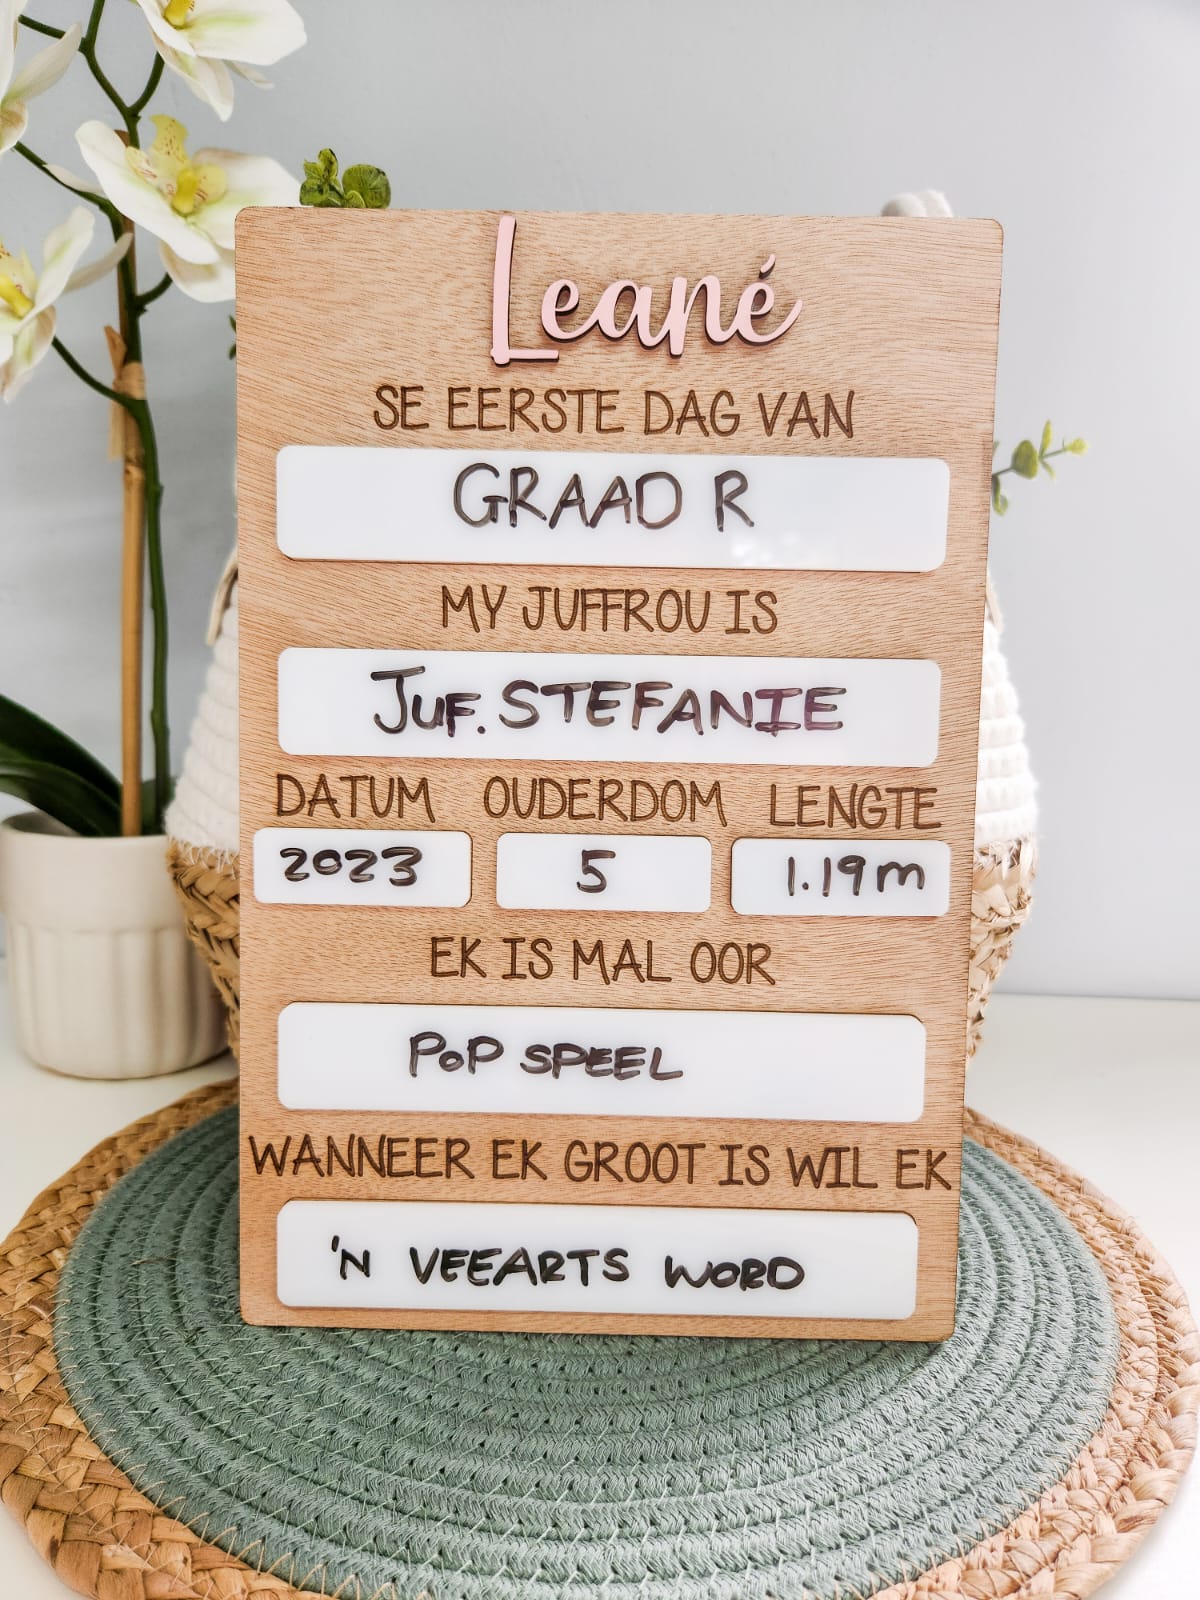 Leané
SE EERSTE DAG VAN
GRAAD R
MY JUFFROU IS
JUF. STEFANIE
DATUM OUDERDOM LENGTE
2023 5 1.19m
EK IS MAL OOR
POP SPEEL
WANNEER EK GROOT IS WIL EK
'N VEEARTS WORD